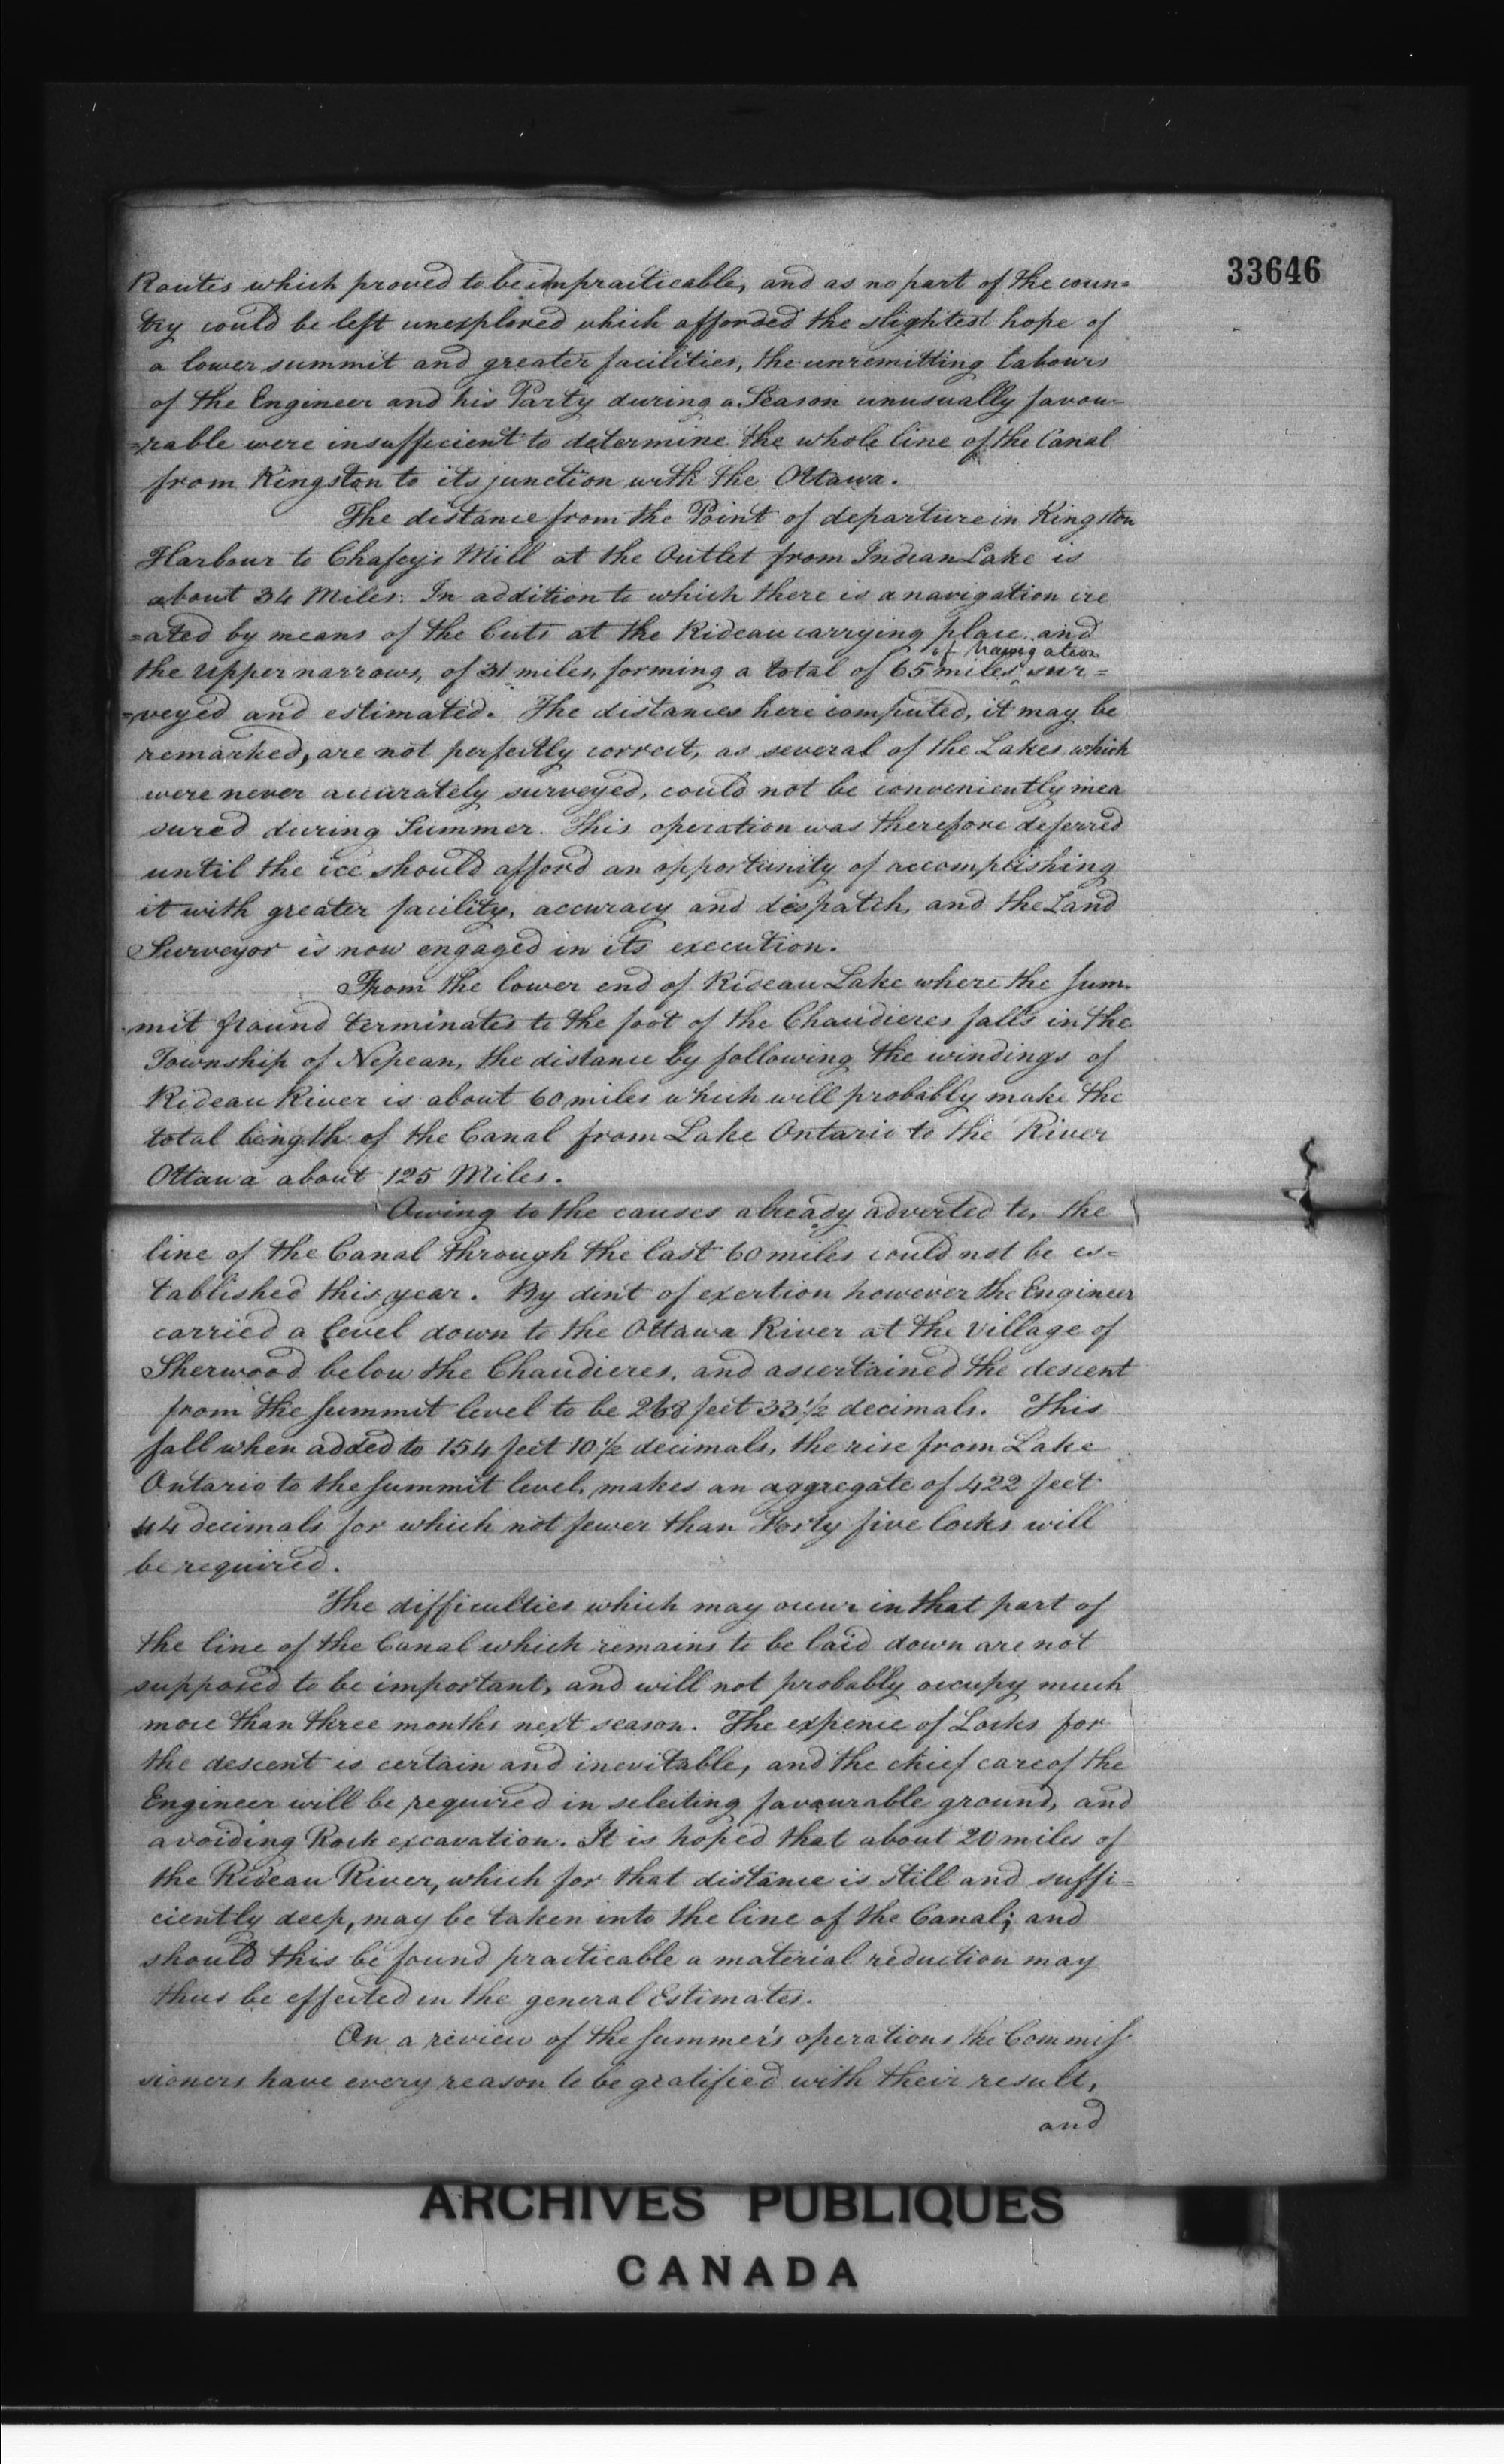 33646
Routes which proved to be impracticable, and as no part of the coun=
try could be left unexplored which afforded the slightest hope of
a lower summit and greater facilities, the unremitting labours
of the Engineer and his Party during a Season unusually favou=
=rable were insufficient to determine the whole line of the Canal
from Kingston to its junction with the Ottawa.
The distance from the Point of departure in Kingston
Harbour to Chafey's Mill at the Outlet from Indian Lake is
about 34 Miles: In addition to which there is a navigation cre
=ated by means of the Cuts at the Rideau carrying place, and
of Navigation
the Upper narrows, of 31 miles, forming a total of 65 miles sur=
=veyed and estimated. The distances here computed, it may be
remarked, are not perfectly correct, as several of the Lakes which
were never accurately surveyed, could not be conveniently mea
sured during Summer. This operation was therefore deferred
until the ice should afford an opportunity of accomplishing
it with greater facility, accuracy and dispatch, and the Land
Surveyor is now engaged in its execution.
From the lower end of Rideau Lake where the Sum-
mit ground terminates to the foot of the Chaudieres falls in the
Township of Nepean, the distance by following the windings of
Rideau River is about 60 miles which will probably make the
total length of the Canal from Lake Ontario to the River
Ottawa about 125 Miles.
Owing to the causes already adverted to, the
line of the Canal through the last 60 miles could not be es=
tablished this year. By dint of exertion however the Engineer
carried a level down to the Ottawa River at the Village of
Sherwood below the Chaudieres, and ascertained the descent
from the Summit level to be 268 feet 33½ decimals. This
fall when added to 154 feet 10½ decimals, the rise from Lake
Ontario to the Summit level, makes an aggregate of 422 feet
44 decimals for which not fewer than Forty five locks will
be required.
The difficulties which may occur in that part of
the line of the Canal which remains to be laid down are not
supposed to be important, and will not probably occupy much
more than three months next season. The expence of Locks for
the descent is certain and inevitable, and the chief care of the
Engineer will be required in selecting favourable ground, and
avoiding Rock excavation. It is hoped that about 20 miles of
the Rideau River, which for that distance is still and suffi=
ciently deep, may be taken into the line of the Canal; and
should this be found practicable a material reduction may
thus be effected in the general Estimates.
On a review of the Summer's operations the Commis-
sioners have every reason to be gratified with their result,
and
ARCHIVES PUBLIQUES
CANADA